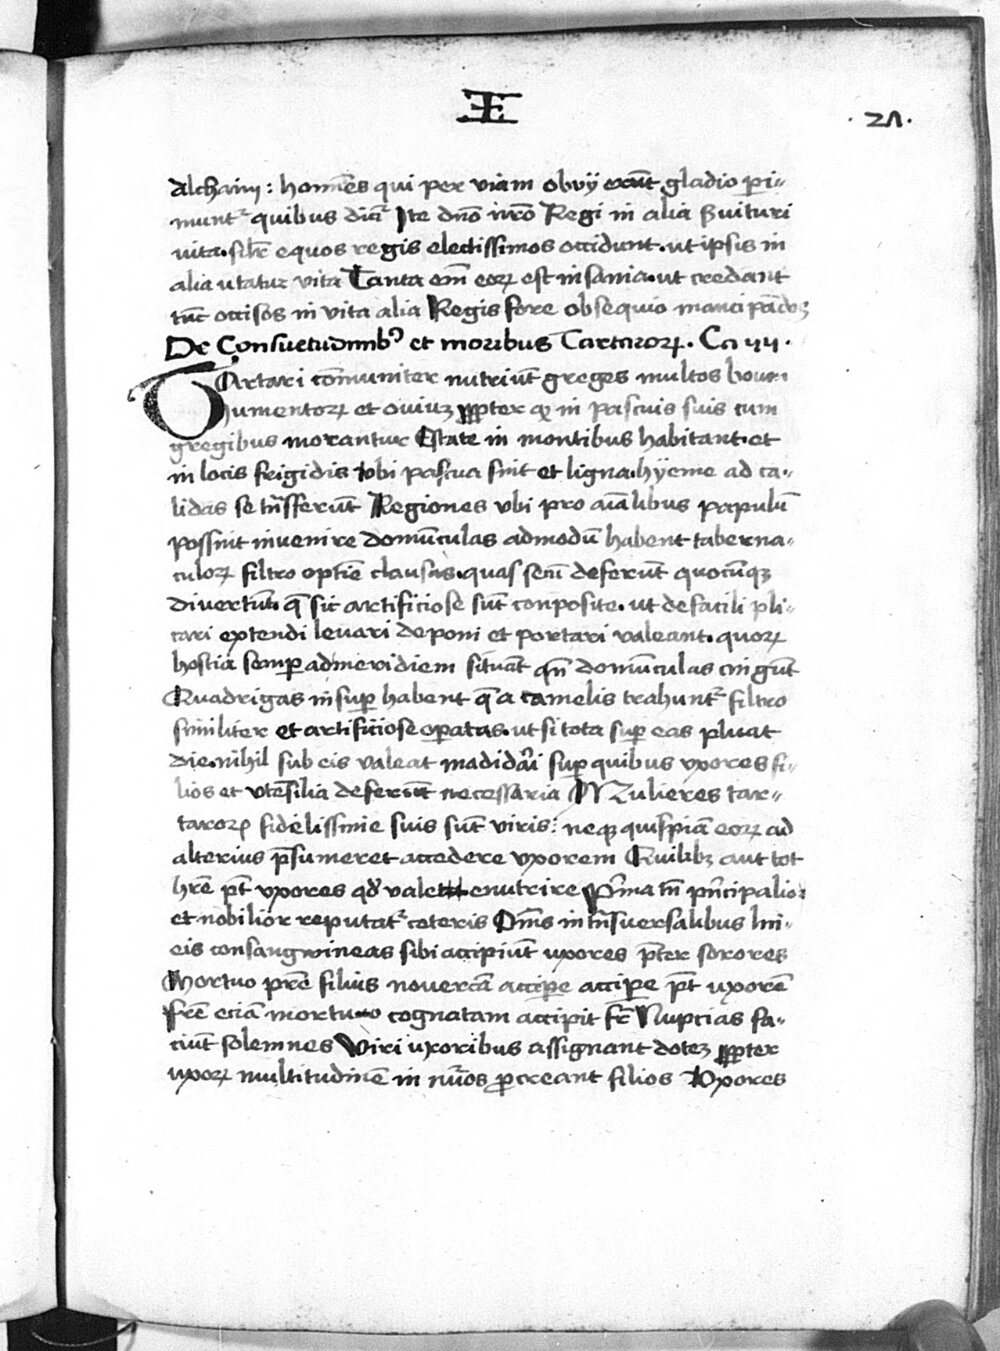 Ξ
· 21 ·
alchaiııȷ : homīes qui per viam obvij erūt gladio peri⸗
munt᷑ quibus dicit᷑ Ite dn̄o nr̄o Regi in alia Svituri
vita. silr̄ equos regis electissimos occidunt. ut ipsis in
alia utatur vita Tanta em̄ eoꝝ est insania. ut credant
tūc occisos in vita alia Regis fore obsequio mancipādos
De Consuetudinibꝰ et moribus Tartaroꝝ. Ca iiij.
TArtari cōmuniter nutriūt greges multos boum
Jumentoꝝ et oviuꝫ propter qꝫ in pascuis suis cum
gregibus morantur Estate in montibus habitant. et
in locis frigidis vbi pascua sint et ligna. hÿeme ad ca⸗
lidas se trāsferūt Regiones vbi pro aīalibus papulū
possint invenire domūculas admodū habent taberna⸗
culoꝝ filtro optīe clausas. quas secū deferūt quocūqꝫ
divertūt. q̄ sic artificiose sūt conposite. ut de facili pli⸗
cari extendi levari deponi et portari valeant. quoꝝ
hostia semꝑ ad meridiem situāt qn̄ domūculas cingūt
Quadrigas insuꝑ habent q̄ a camelis trahunt᷑ filtro
similiter et artificiose oꝑatas. ut si tota suꝑ eas pluat
die. nihil sub eis valeat madidari suꝑ quibus vxores fi⸗
lios et vtēsilia deferūt necessaria Mulieres tar⸗
taroꝝ fidelissime suis sūt viris : neqꝫ quispiam eoꝝ ad
alterius p̄sumeret accedere vxorem Quilibꝫ aut tot
hr̄e pt̄ vxores qd̓ valet enutrire Prima tn̄ prīcipalior
et nobilior reputat᷑ ceteris Om̄s in trāsversalibus lini⸗
eis consangwineas sibi accipiūt vxores pt̄er sorores
Mortuo pr̄e filius novercā accipe accipere pt̄ vxorē
fr̄e eciā mortuo cognatam accipit fr̄ Nuptias fa⸗
ciūt solemnes Viri vxoribus assignant dotes propter
vxoꝝ multitudinē in nūos ꝓcreant filios Vxores